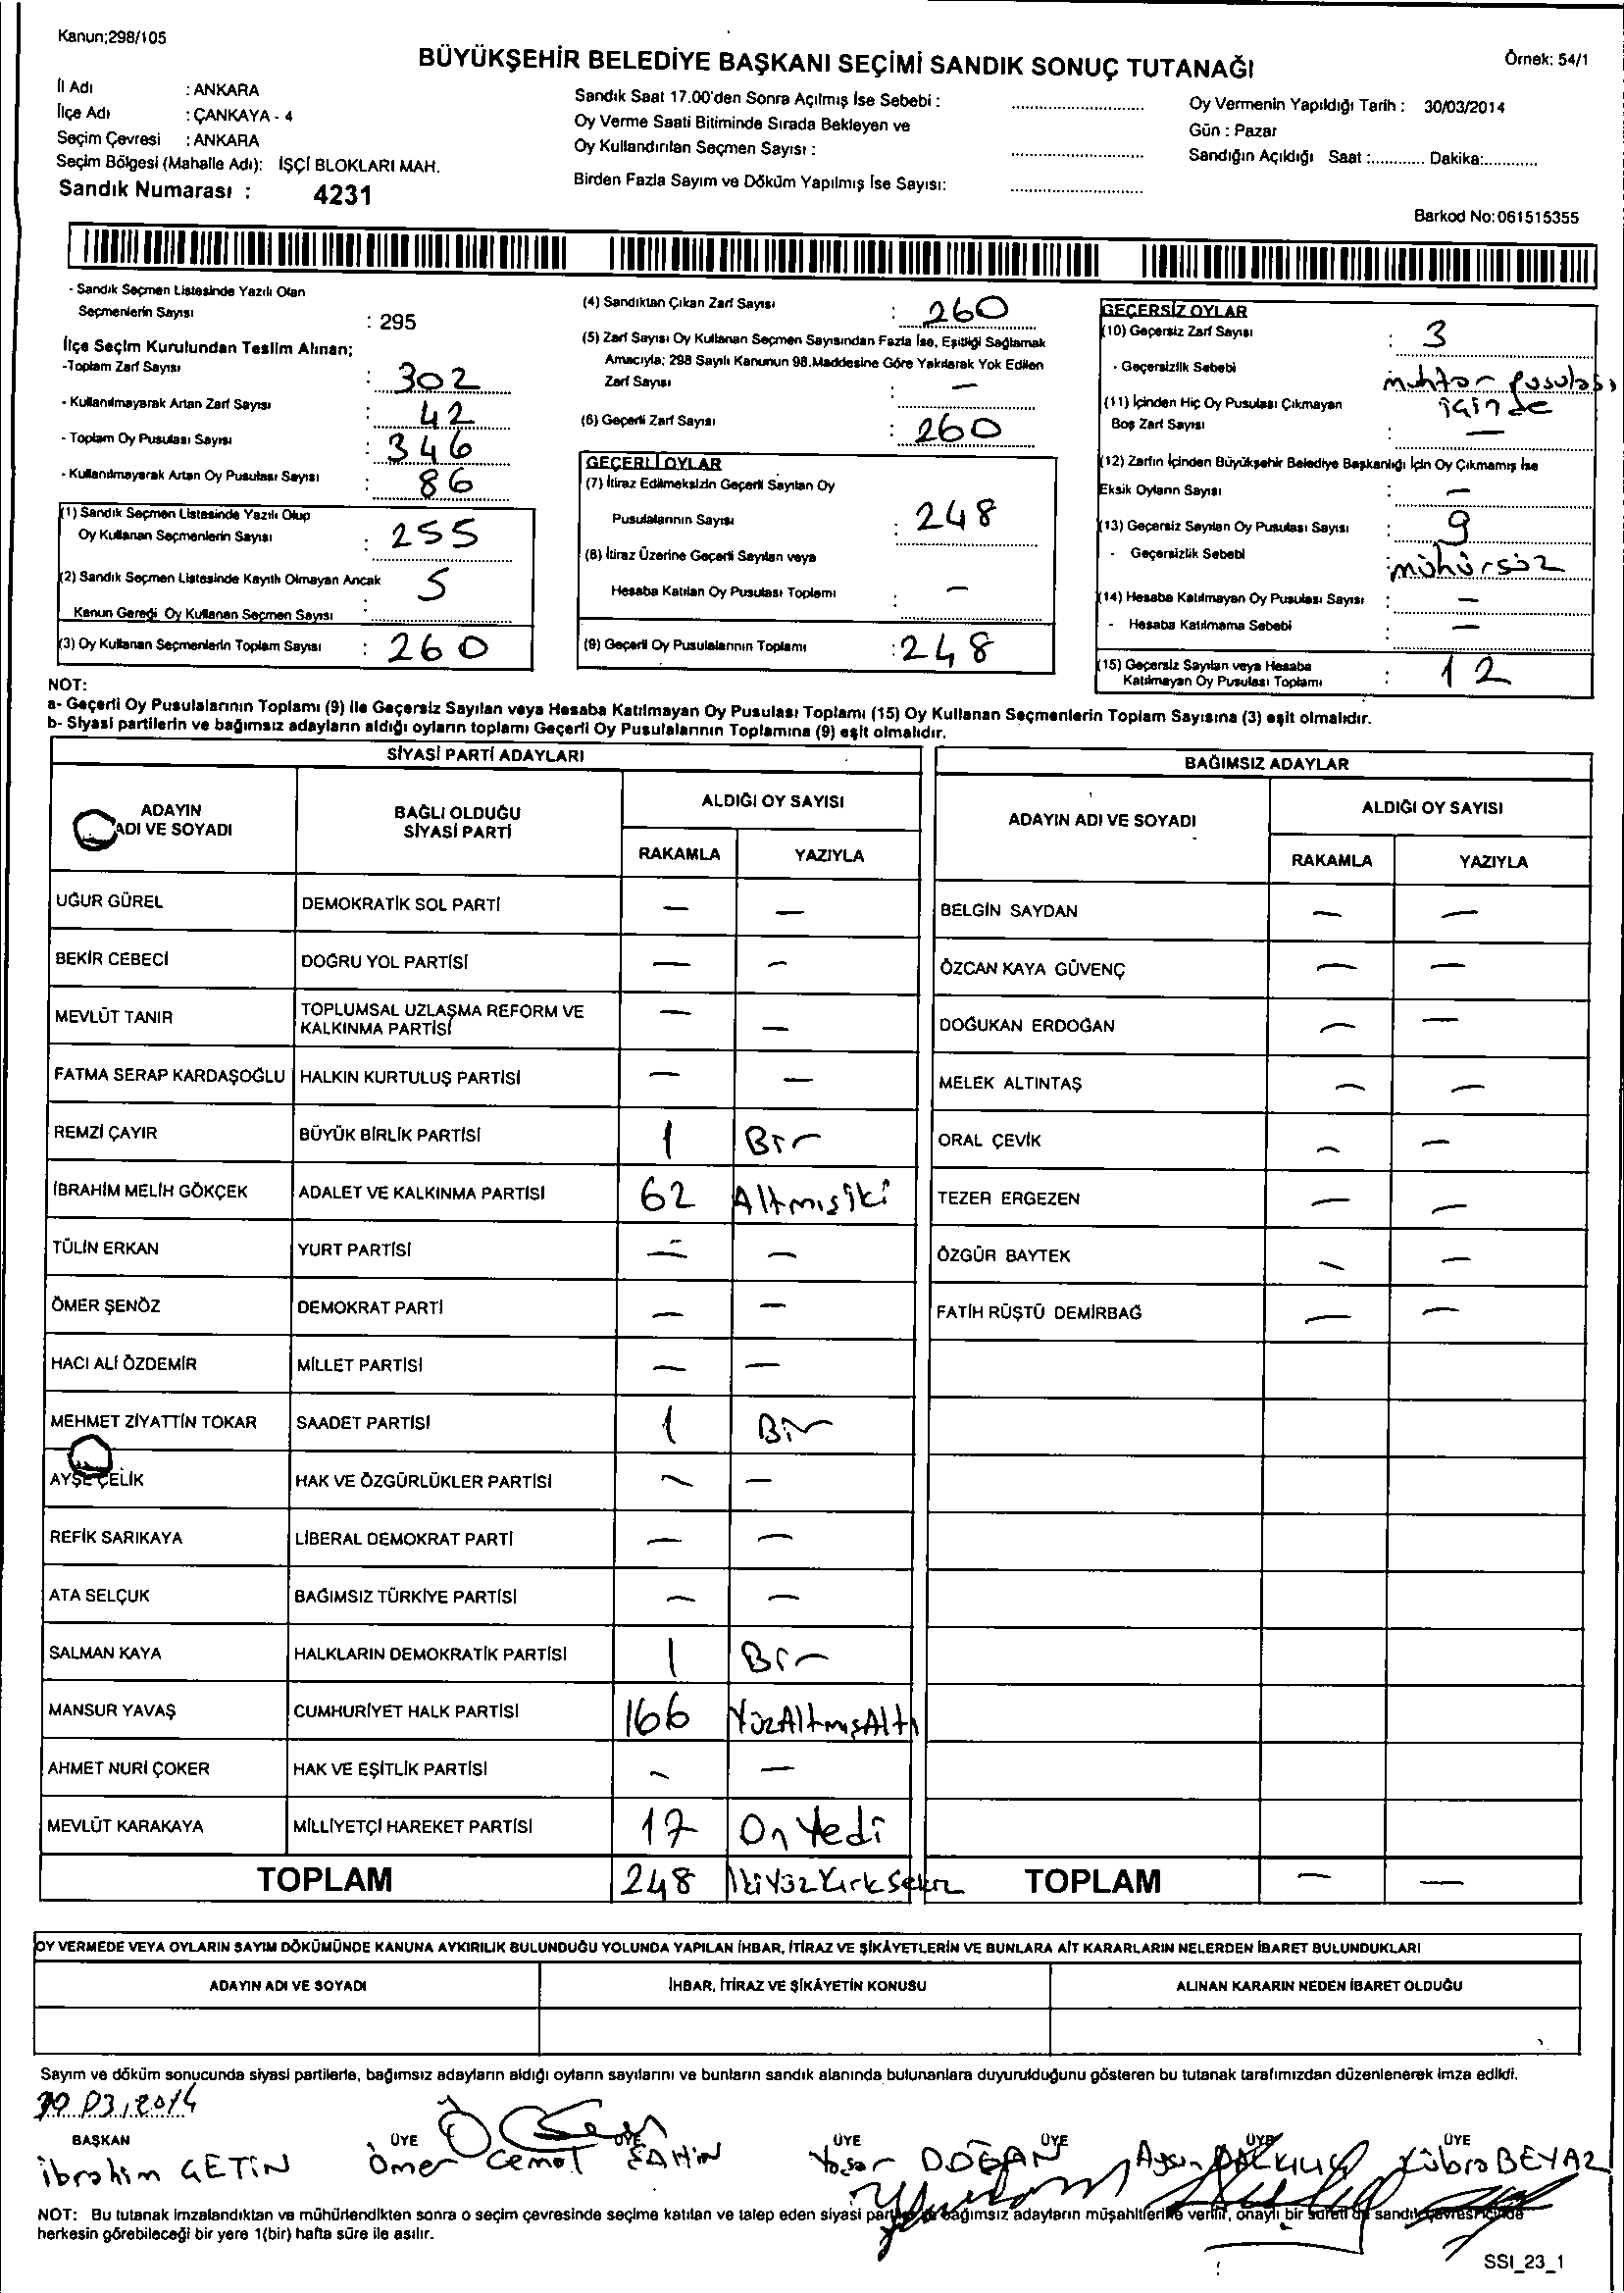 Kanun;298/105
BÜYÜKŞEHİR BELEDİYE BAŞKANI SEÇİMİ SANDIK SONUÇ TUTANAĞI
Örnek: 54/1
İl Adı : ANKARA
İlçe Adı : ÇANKAYA - 4
Seçim Çevresi : ANKARA
Seçim Bölgesi (Mahalle Adı): İŞÇİ BLOKLARI MAH.
Sandık Numarası : 4231
Sandık Saat 17.00'den Sonra Açılmış İse Sebebi : ..........
Oy Verme Saati Bitiminde Sırada Bekleyen ve
Oy Kullandırılan Seçmen Sayısı : ..........
Birden Fazla Sayım ve Döküm Yapılmış İse Sayısı: ..........
Oy Vermenin Yapıldığı Tarih : 30/03/2014
Gün : Pazar
Sandığın Açıldığı Saat :............ Dakika:............
Barkod No:061515355
- Sandık Seçmen Listesinde Yazılı Olan
Seçmenlerin Sayısı : 295
İlçe Seçim Kurulundan Teslim Alınan;
-Toplam Zarf Sayısı : 302
- Kullanılmayarak Artan Zarf Sayısı : 42
- Toplam Oy Pusulası Sayısı : 346
- Kullanılmayarak Artan Oy Pusulası Sayısı : 86
(1) Sandık Seçmen Listesinde Yazılı Olup
Oy Kullanan Seçmenlerin Sayısı : 255
(2) Sandık Seçmen Listesinde Kayıtlı Olmayan Ancak
Kanun Gereği Oy Kullanan Seçmen Sayısı : 5
(3) Oy Kullanan Seçmenlerin Toplam Sayısı : 260
(4) Sandıktan Çıkan Zarf Sayısı : 260
(5) Zarf Sayısı Oy Kullanan Seçmen Sayısından Fazla İse, Eşitliği Sağlamak
Amacıyla; 298 Sayılı Kanunun 98.Maddesine Göre Yakılarak Yok Edilen
Zarf Sayısı : —
(6) Geçerli Zarf Sayısı : 260
GEÇERLİ OYLAR
(7) İtiraz Edilmeksizin Geçerli Sayılan Oy
Pusulalarının Sayısı : 248
(8) İtiraz Üzerine Geçerli Sayılan veya
Hesaba Katılan Oy Pusulası Toplamı : —
(9) Geçerli Oy Pusulalarının Toplamı : 248
GEÇERSİZ OYLAR
(10) Geçersiz Zarf Sayısı : 3
- Geçersizlik Sebebi : muhtar pusulası
içinde
(11) İçinden Hiç Oy Pusulası Çıkmayan
Boş Zarf Sayısı : —
(12) Zarfın İçinden Büyükşehir Belediye Başkanlığı İçin Oy Çıkmamış İse
Eksik Oyların Sayısı : —
(13) Geçersiz Sayılan Oy Pusulası Sayısı : 9
- Geçersizlik Sebebi : mühürsüz
(14) Hesaba Katılmayan Oy Pusulası Sayısı : —
- Hesaba Katılmama Sebebi : —
(15) Geçersiz Sayılan veya Hesaba
Katılmayan Oy Pusulası Toplamı : 12
NOT:
a- Geçerli Oy Pusulalarının Toplamı (9) ile Geçersiz Sayılan veya Hesaba Katılmayan Oy Pusulası Toplamı (15) Oy Kullanan Seçmenlerin Toplam Sayısına (3) eşit olmalıdır.
b- Siyasi partilerin ve bağımsız adayların aldığı oyların toplamı Geçerli Oy Pusulalarının Toplamına (9) eşit olmalıdır.
SİYASİ PARTİ ADAYLARI
ADAYIN ADI VE SOYADI
BAĞLI OLDUĞU SİYASİ PARTİ
ALDIĞI OY SAYISI
RAKAMLA YAZIYLA
UĞUR GÜREL DEMOKRATİK SOL PARTİ — —
BEKİR CEBECİ DOĞRU YOL PARTİSİ — —
MEVLÜT TANIR TOPLUMSAL UZLAŞMA REFORM VE KALKINMA PARTİSİ — —
FATMA SERAP KARDAŞOĞLU HALKIN KURTULUŞ PARTİSİ — —
REMZİ ÇAYIR BÜYÜK BİRLİK PARTİSİ 1 Bir
İBRAHİM MELİH GÖKÇEK ADALET VE KALKINMA PARTİSİ 62 Altmışiki
TÜLİN ERKAN YURT PARTİSİ — —
ÖMER ŞENÖZ DEMOKRAT PARTİ — —
HACI ALİ ÖZDEMİR MİLLET PARTİSİ — —
MEHMET ZİYATTİN TOKAR SAADET PARTİSİ 1 Bir
AYŞE ÇELİK HAK VE ÖZGÜRLÜKLER PARTİSİ — —
REFİK SARIKAYA LİBERAL DEMOKRAT PARTİ — —
ATA SELÇUK BAĞIMSIZ TÜRKİYE PARTİSİ — —
SALMAN KAYA HALKLARIN DEMOKRATİK PARTİSİ 1 Bir
MANSUR YAVAŞ CUMHURİYET HALK PARTİSİ 166 YüzAltmışAltı
AHMET NURİ ÇOKER HAK VE EŞİTLİK PARTİSİ — —
MEVLÜT KARAKAYA MİLLİYETÇİ HAREKET PARTİSİ 17 On Yedi
TOPLAM 248 İkiYüzKırkSekiz
BAĞIMSIZ ADAYLAR
ADAYIN ADI VE SOYADI
ALDIĞI OY SAYISI
RAKAMLA YAZIYLA
BELGİN SAYDAN — —
ÖZCAN KAYA GÜVENÇ — —
DOĞUKAN ERDOĞAN — —
MELEK ALTINTAŞ — —
ORAL ÇEVİK — —
TEZER ERGEZEN — —
ÖZGÜR BAYTEK — —
FATİH RÜŞTÜ DEMİRBAĞ — —
TOPLAM — —
OY VERMEDE VEYA OYLARIN SAYIM DÖKÜMÜNDE KANUNA AYKIRILIK BULUNDUĞU YOLUNDA YAPILAN İHBAR, İTİRAZ VE ŞİKÂYETLERİN VE BUNLARA AİT KARARLARIN NELERDEN İBARET BULUNDUKLARI
ADAYIN ADI VE SOYADI İHBAR, İTİRAZ VE ŞİKÂYETİN KONUSU ALINAN KARARIN NEDEN İBARET OLDUĞU
Sayım ve döküm sonucunda siyasi partilerle, bağımsız adayların aldığı oyların sayılarını ve bunların sandık alanında bulunanlara duyurulduğunu gösteren bu tutanak tarafımızdan düzenlenerek imza edildi.
30.03.2014
BAŞKAN ÜYE ÜYE ÜYE ÜYE ÜYE ÜYE
İbrahim ÇETİN Ömer Cemal ŞAHİN Yaşar DOĞAN Aysun Kübra BEYAZ
NOT: Bu tutanak imzalandıktan ve mühürlendikten sonra o seçim çevresinde seçime katılan ve talep eden siyasi parti bağımsız adayların müşahitlerine verilir, onaylı bir sureti de sandık çevresi içinde
herkesin görebileceği bir yere 1(bir) hafta süre ile asılır.
SSI_23_1